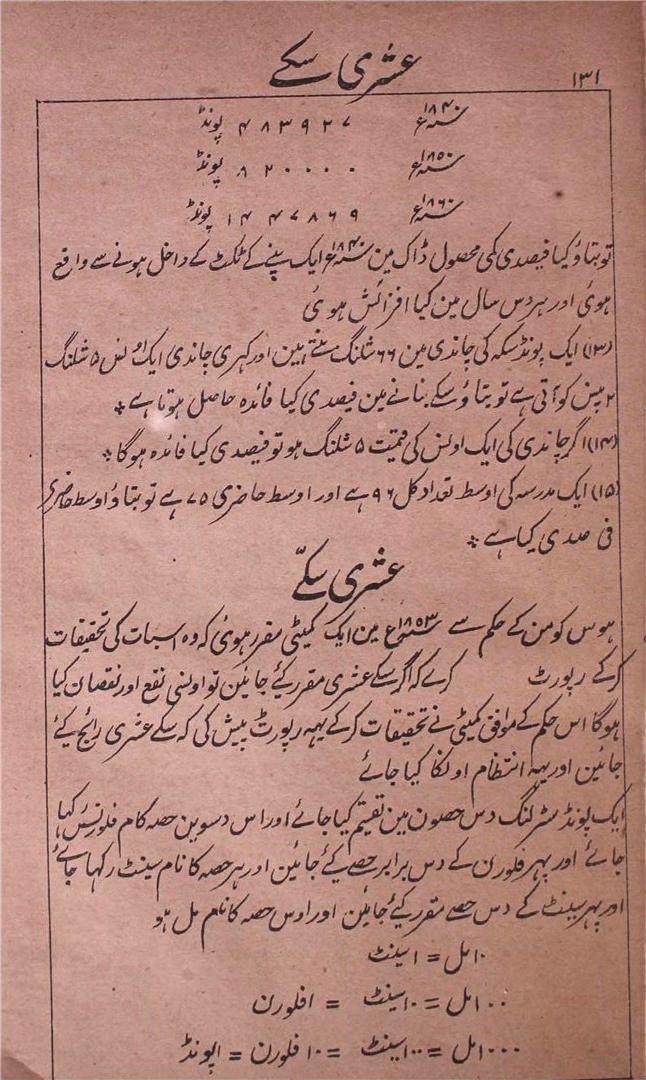 ۱۳۱
عشری سکے
سنہ ۱۸۴۰ع ۴۸۳۹۲۷ پونڈ
سنہ ۱۸۵۰ع ۸۲۰۰۰۰ پونڈ
سنہ ۱۸۶۰ع ۱۴۴۷۸۶۹ پونڈ
تو بتاؤ کیا فیصدی کمی محصول ڈاک مین سنہ ۱۸۴۰ع ایک پینے کے ٹکٹ کے داخل ہونے سے واقع
ہوئ اور ہر دس سال مین کیا افزائش ہوئ
(۱۳) ایک پونڈ سکہ کی چاندی مین ۶۶ شلنگ بنتے ہین اور کہری چاندی ایک اونس ۵ شلنگ
۲ پینس کو آتی ہے تو بتاؤ سکے بنانے مین فیصدی کیا فائدہ حاصل ہوتا ہے *
(۱۴) اگر چاندی کی ایک اونس کی قیمت ۵ شلنگ ہو تو فیصدی کیا فائدہ ہوگا *
(۱۵) ایک مدرسہ کی اوسط تعداد کل ۹۶ ہے اور اوسط حاضری ۷۵ ہے تو بتاؤ اوسط حاضری
فی صدی کیا ہے *
عشری سکّے
ہوس کومن کے حکم سے سنہ ۱۸۵۳ع مین ایک کمیٹی مقرر ہوئ کہ وہ اسبات کی تحقیقات
کرکے رپورٹ کرے کہ اگر سکے عشری مقرر کیے جائین تو اونسی نفع اور نقصان کیا
ہوگا اس حکم کے موافق کمیٹی نے تحقیقات کرکے یہہ رپورٹ پیش کی کہ سکے عشری رائج کیے
جائین اور یہہ انتظام اونکا کیا جائے
ایک پونڈ سٹرلنگ دس حصون مین تقسیم کیا جائے اور اس دسوین حصہ کا نام فلورنس رکہا
جائے اور پہر فلورن کے دس برابر حصے کیے جائین اور ہر حصہ کا نام سینٹ رکہا جائے
اور پہر سینٹ کے دس حصے مقرر کیے جائین اور اوس حصہ کا نام مل ہو
۱۰ مل = ۱ سینٹ
۱۰۰ مل = ۱۰ سینٹ = ۱ فلورن
۱۰۰۰ مل = ۱۰۰ سینٹ = ۱۰ فلورن = ۱ پونڈ